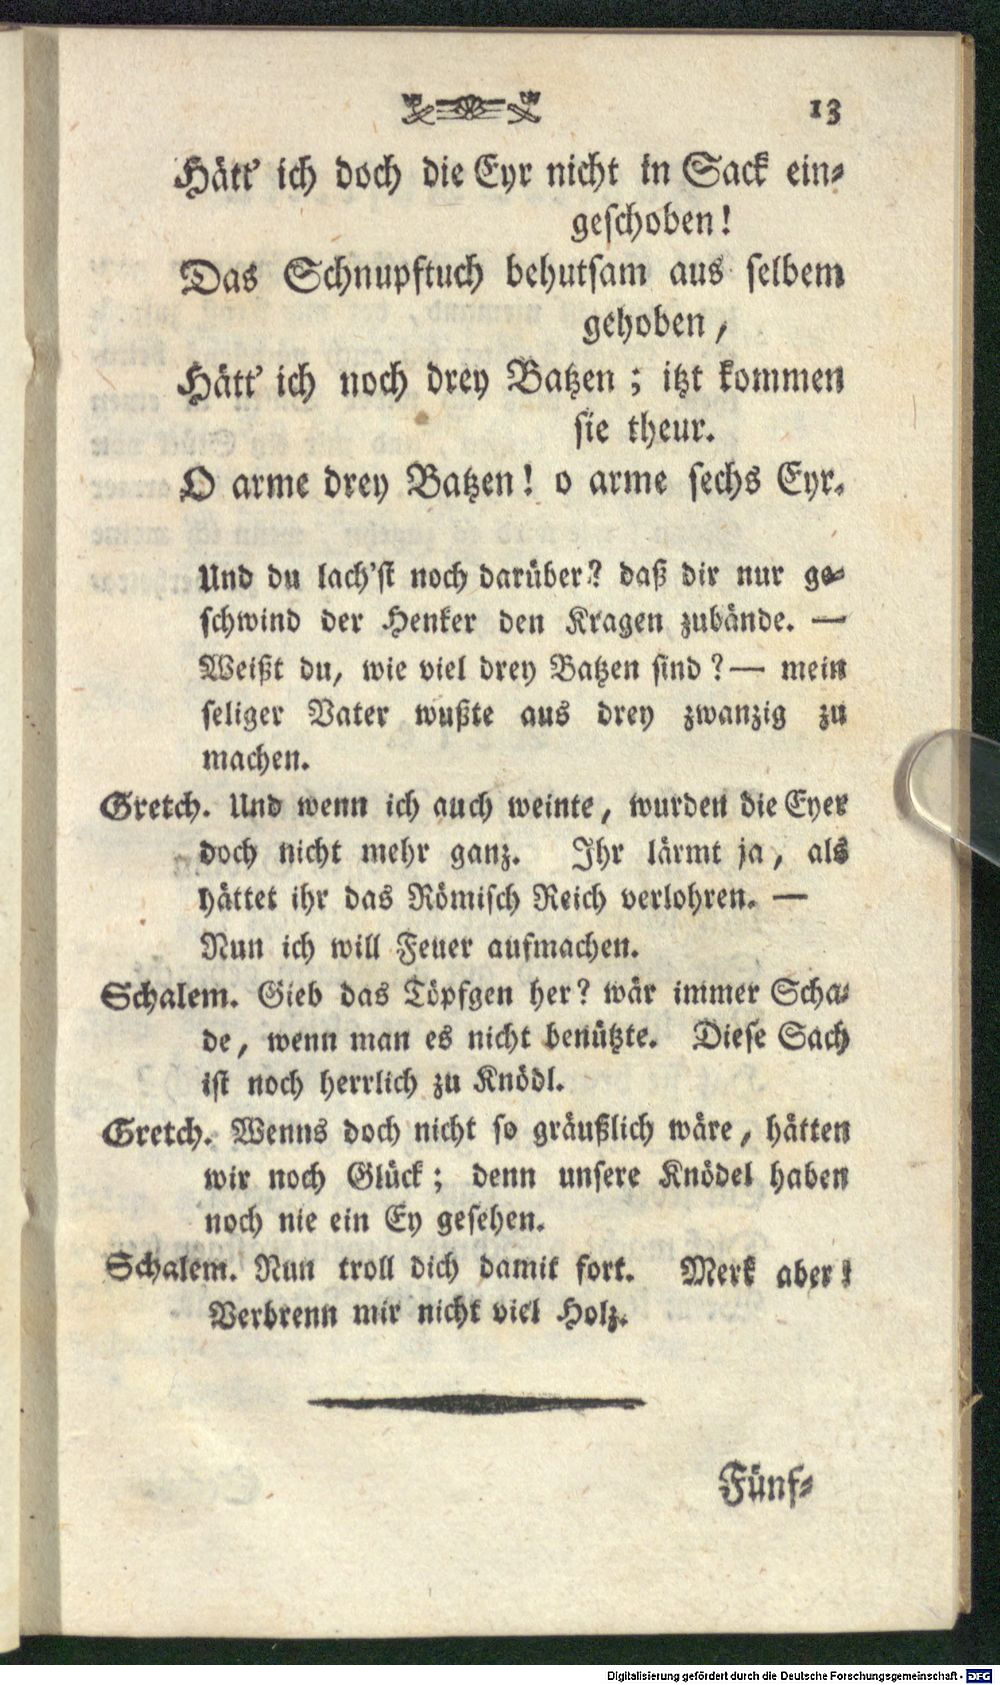 13
Hätt' ich doch die Eyr nicht in Sack ein-
geschoben!
Das Schnupftuch behutsam aus selbem
gehoben,
Hätt' ich noch drey Batzen; itzt kommen
sie theur.
O arme drey Batzen! o arme sechs Eyr.
Und du lach'st noch darüber? daß dir nur ge-
schwind der Henker den Kragen zubände. —
Weißt du, wie viel drey Batzen sind? — mein
seliger Vater wußte aus drey zwanzig zu
machen.
Gretch. Und wenn ich auch weinte, wurden die Eyer
doch nicht mehr ganz. Ihr lärmt ja, als
hättet ihr das Römisch Reich verlohren. —
Nun ich will Feuer aufmachen.
Schalem. Gieb das Töpfgen her? wär immer Scha-
de, wenn man es nicht benützte. Diese Sach
ist noch herrlich zu Knödl.
Gretch. Wenns doch nicht so gräußlich wäre, hätten
wir noch Glück; denn unsere Knödel haben
noch nie ein Ey gesehen.
Schalem. Nun troll dich damit fort. Merk aber!
Verbrenn mir nicht viel Holz.
Fünf-
Digitalisierung gefördert durch die Deutsche Forschungsgemeinschaft - DFG